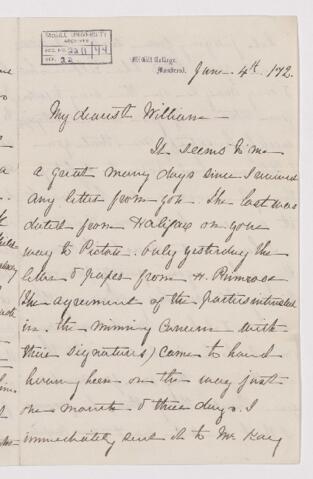 McGILL UNIVERSITY
ARCHIVES
ACC. NO. 2211/44
REF. 22
McGill College,
Montreal, June 4th 172.
My dearest William
It seems to me
a great many days since I received
any letter from you. The last was
dated from Halifax on your
way to Pictou. Only yesterday the
letter & papers from H. Primrose
(the agreement of the parties interested
in the Mining Concern with
their signatures) came to hand
having been on the way just
one month & three days. I
immediately sent it to Mr Kay